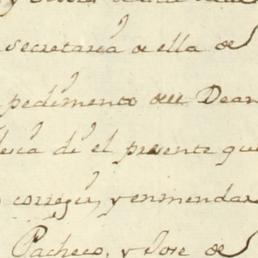 secretaria de ella de
pedimento del Dean
de el presente que
corregir, y enmendar
Pacheco, y Jose de